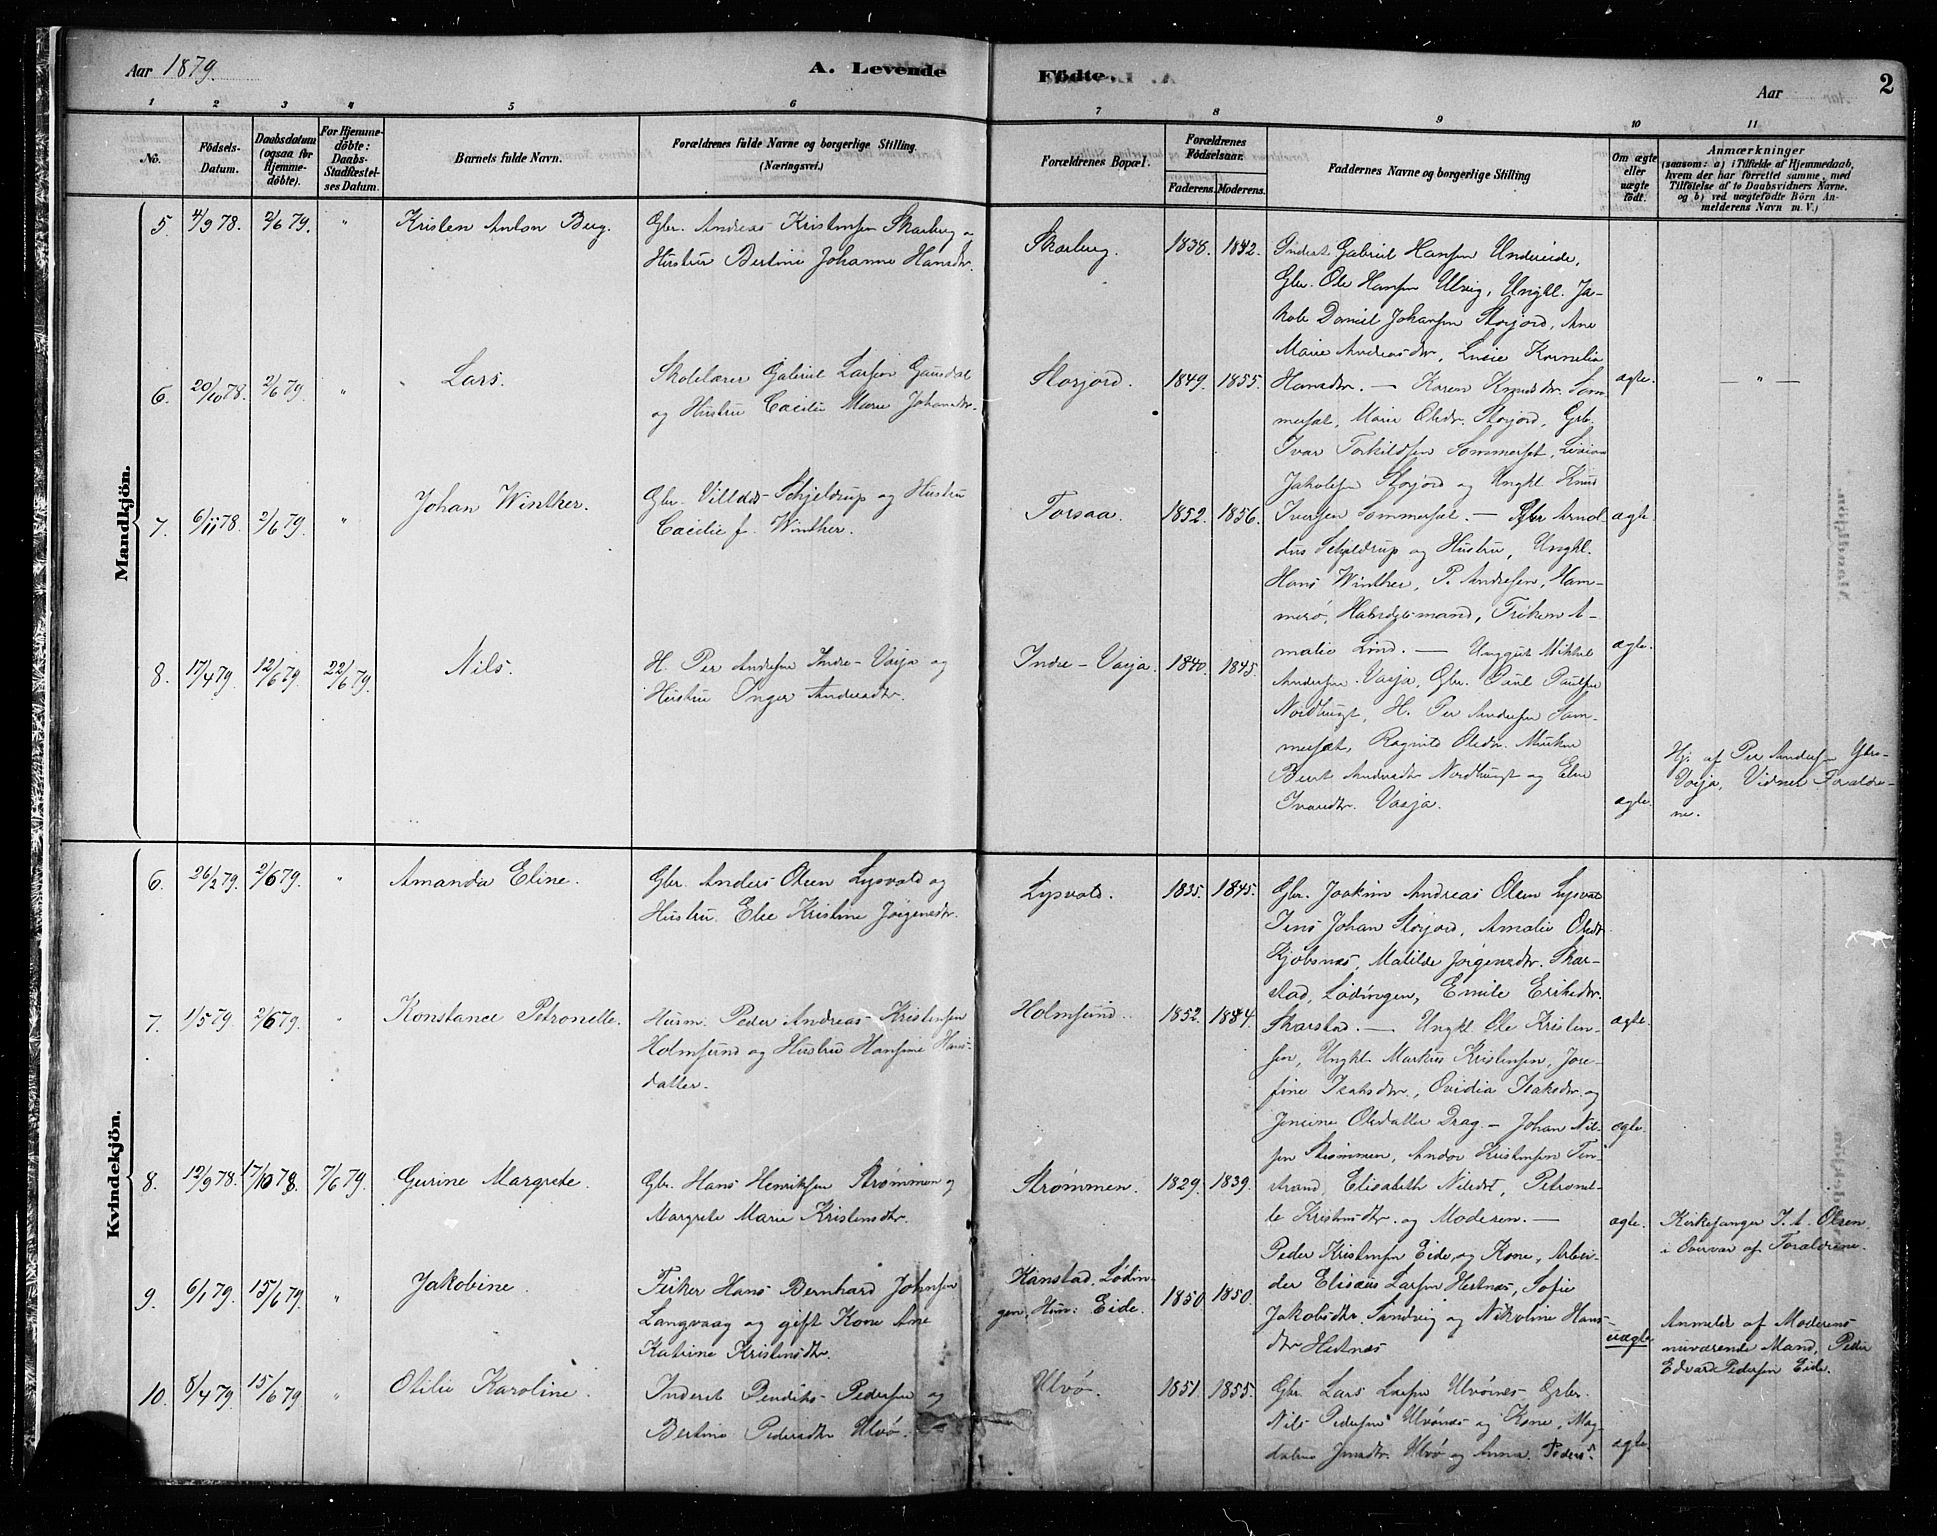 Aar 1879.
A. Levende
Födte.
Aar
2
1
2
3
4
5
6
7
8
9
10
11
No.
Födsels-
Datum.
Daabsdatum
(ogsaa for
Hjemme-
döbte).
For Hjemme-
döbte:
Daabs-
Stadfæstel-
ses Datum.
Barnets fulde Navn.
Forældrenes fulde Navne og borgerlige Stilling.
(Næringsvei.)
Forældrenes Bopæl.
Forældrenes
Födselsaar.
Faderens.
Moderens.
Faddernes Navne og borgerlige Stilling
Om ægte
eller
uægte
födt.
Anmærkninger
(saasom: a) i Tilfælde af Hjemmedaab,
hvem der har forrettet samme, med
Tilföielse af to Daabsvidners Navne.
og b) ved uægtefödte Börn An-
melderens Navn m. V.)
Mandkjön.
5. 4/9 78. 2/6 79. " Kristen Anton Berg. Gbr. Andreas Kristensen Skarberg og
Hustru Bertine Johanne Hansdtr.
Skarberg. 1838. 1842. Inderst Gabriel Hansen Undereide,
Gbr. Ole Hansen Ulvig, Ungkl. Ja-
kob Daniel Johansen Storjord, Ane
Marie Andreasdtr, Lusie Kornelia
6. 20/10 78. 2/6 79. " Lars. Skolelærer Gabriel Larsen Gausdal
og Hustru Cæcilie Marie Johansdtr.
Storjord. 1849. 1855. Hansdtr. — Karen Knudsdtr. Som- ægte. — " —
mersæt, Marie Olsdr. Storjord, Gbr.
Ivar Torkildsen Sommersæt,
Jakobsen Storjord og Ungkl. Knud
7. 6/11 78. 2/6 79. " Johan Winther. Gbr. Villads Schjeldrup og Hustru
Cæcilie f. Winther.
Torsaa. 1852. 1856. Iversen Sommersæt. — Gbr Arnol- ægte.
dus Schjeldrup og Hustru, Ungkl.
Hans Winther, P. Andresen, Ham-
merø, Handelsmand, Frøken A-
malie Lind. — Mikkel ægte.
8. 17/4 79. 12/6 79. 22/6 79. Nils. H. Per Andersen Indre-Vasja og
Hustru Inger Andersdtr.
Indre-Vasja. 1840. 1845.
Andersen Vasja, Gbr. Paul Paulsen
Nordbugt, H. Per Andersen Som-
mersæt, Ragnild Olsdr.
Berit Andersdtr Nordbugt og Elen
Ivarsdtr. Vasja. ægte.
Hj. af Per Andersen
Vasja, Vidner Forældre-
ne.
Kvindekjön.
6. 26/2 79. 2/6 79. " Amanda Eline. Gbr. Anders Olsen Lysvold og
Hustru Else Kristine Jørgensdtr.
Lysvold. 1835. 1845. Gbr. Joakim Andreas Olsen Lysvol
Jens Johan Storjord, Amalie Olsdt
Kjøbsnæs, Matilde Jørgensdtr. Skar-
stad, Lødingen, Emile Eriksdtr.
7. 1/5 79. 2/6 79. " Konstance Petronelle. Husm. Peder Andreas Kristensen
Holmsund og Hustru Hansine Hans-
datter.
Holmsund. 1852. Skarstad. — Ungkl Ole Kristen- ægte.
sen, Ungkl. Markus Kristensen, Jose-
fine Isaksdtr., Ovidia Isaksdtr. og
Jensine Olsdatter Drag. — Johan Nil- ægte.
sen Strømmen, Andor Kristensen Fin-
8. 12/9 78. 17/10 78. 7/6 79. Gurine Margrete. Gbr. Hans Henriksen Strømmen og
Margrete Marie Kristensdtr.
Strømmen. 1829. 1839. strand, Elisabeth Nilsdt, Petronel-
le Kristensdtr. og Moderen. — ægte. Kirkesanger J. A. Olsen
i Overvær af Forældrene.
Peder Kristensen Eide og Kone, Arbei-
9. 6/1 79. 15/6 79. " Jakobine. Fisker Hans Bernhard Johnsen
Langvaag og gift Kone Ane
Katrine Kristensdtr.
Kanstad, Lødin-
gen, Hun: Eide. 1850 1850. der Elisæus Larsen Hestnæs, Sofie
Jakobsdtr. Sandvig og Nikoline Hans-
dtr Hestnæs uægte Anmeldt af Moderens
nuværende Mand, Peder
Edvard Pedersen Eide.
10. 8/4 79. 15/6 79. " Otilie Karoline. Inderst Pendiks Pedersen og
Bertine Pedersdtr Ulvø.
Ulvø. 1851. 1855. Gbr. Lars Larsen Ulvønes, Gbr.
Nils Pedersen Ulvønæs og Kone, Mag-
dalene Jensdtr. Ulvø og Anna Peders- ægte.